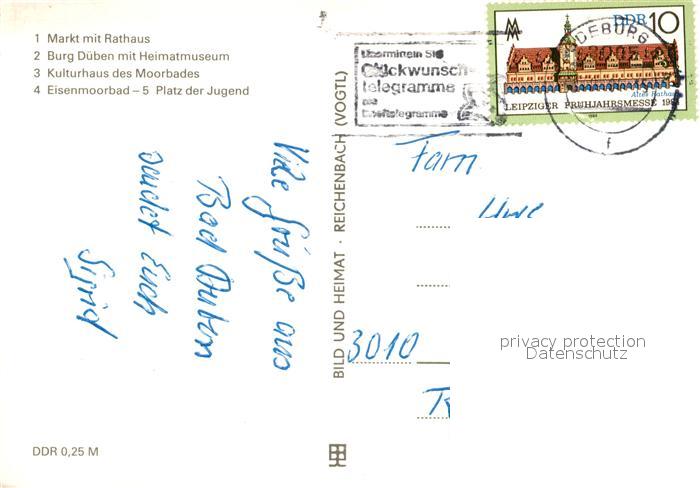 1 Markt mit Rathaus
2 Burg Düben mit Heimatmuseum
3 Kulturhaus des Moorbades
4 Eisenmoorbad – 5 Platz der Jugend
Viele Grüße aus
Bad Düben
sendet Euch
Sigrid
DDR 0,25 M
BILD UND HEIMAT · REICHENBACH (VOGTL)
Übermitteln Sie
Glückwunsch-
telegramme
DDR 10
Altes Rathaus
LEIPZIGER FRÜHJAHRSMESSE 1984
f
Fam
Uwe
3010
privacy protection
Datenschutz